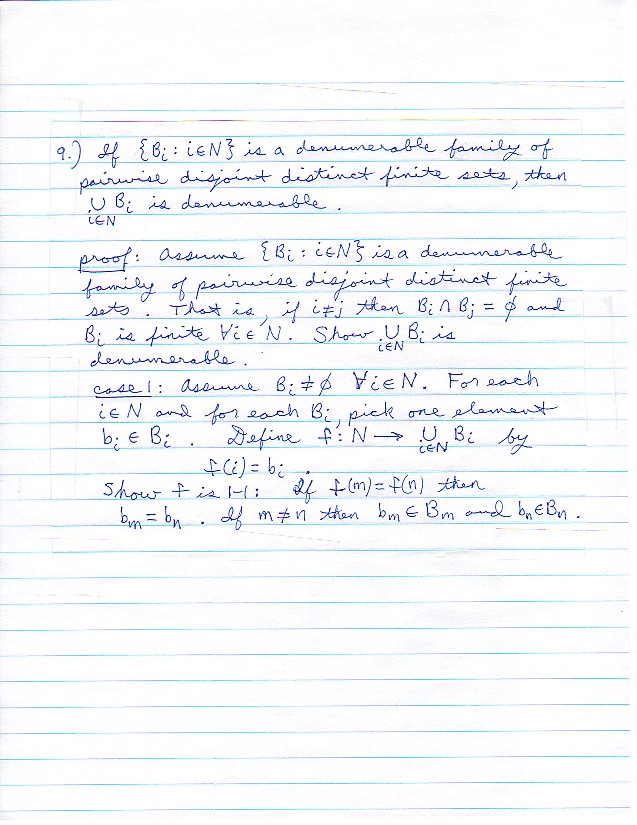 9.) If {Bi : i∈N} is a denumerable family of
pairwise disjoint distinct finite sets, then
∪ Bi is denumerable.
i∈N
proof: Assume {Bi : i∈N} is a denumerable
family of pairwise disjoint distinct finite
sets. That is, if i≠j then Bi ∩ Bj = ϕ and
Bi is finite ∀i∈N. Show ∪ Bi is
i∈N
denumerable.
case 1: Assume Bi ≠ ϕ ∀i∈N. For each
i∈N and for each Bi, pick one element
bi ∈ Bi. Define f: N → ∪ Bi by
i∈N
f(i) = bi.
Show f is 1-1: If f(m) = f(n) then
bm = bn. If m≠n then bm ∈ Bm and bn∈Bn.